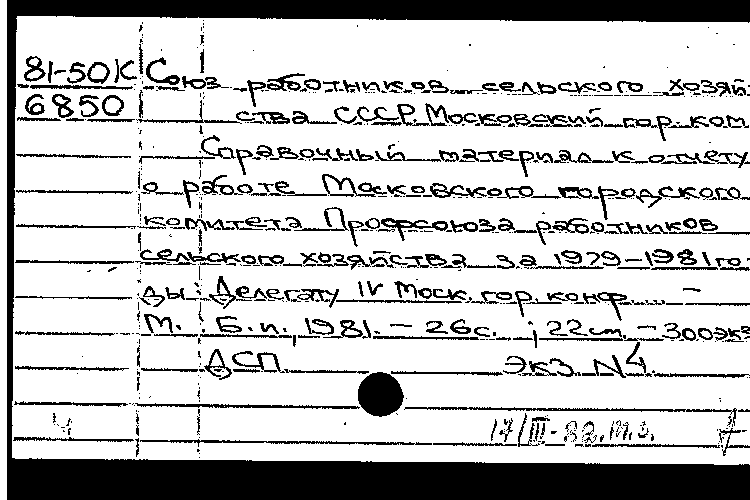 81-50К Союз работников сельского хозяй-
6850 ства СССР. Московский гор. ком.
Справочный материал к отчету
о работе Московского городского
комитета Профсоюза работников
сельского хозяйства за 1979-1981 го-
ды: Делегату IV Моск. гор. конф.... -
М.: Б.и., 1981. - 26с. ; 22 см. - 300экз
ДСП ЭКЗ N4.
4 17/III-82. М.З.